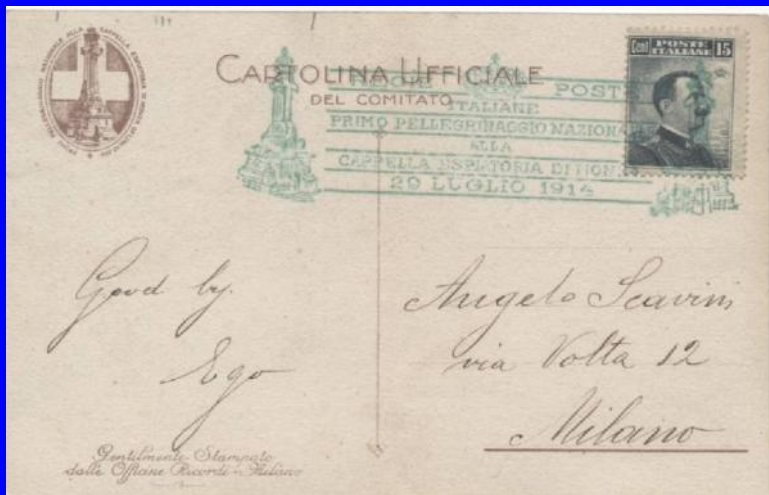 CARTOLINA UFFICIALE
DEL COMITATO
POSTE
ITALIANE
PRIMO PELLEGRINAGGIO NAZIONA
ALLA
CAPPELLA ESPIATORIA DI MON
29 LUGLIO 1914
Cent POSTE ITALIANE 15
Good by.
Ego
Angelo Scavini
via Volta 12
Milano
Gentilmente Stampato
dalle Officine Ricordi - Milano